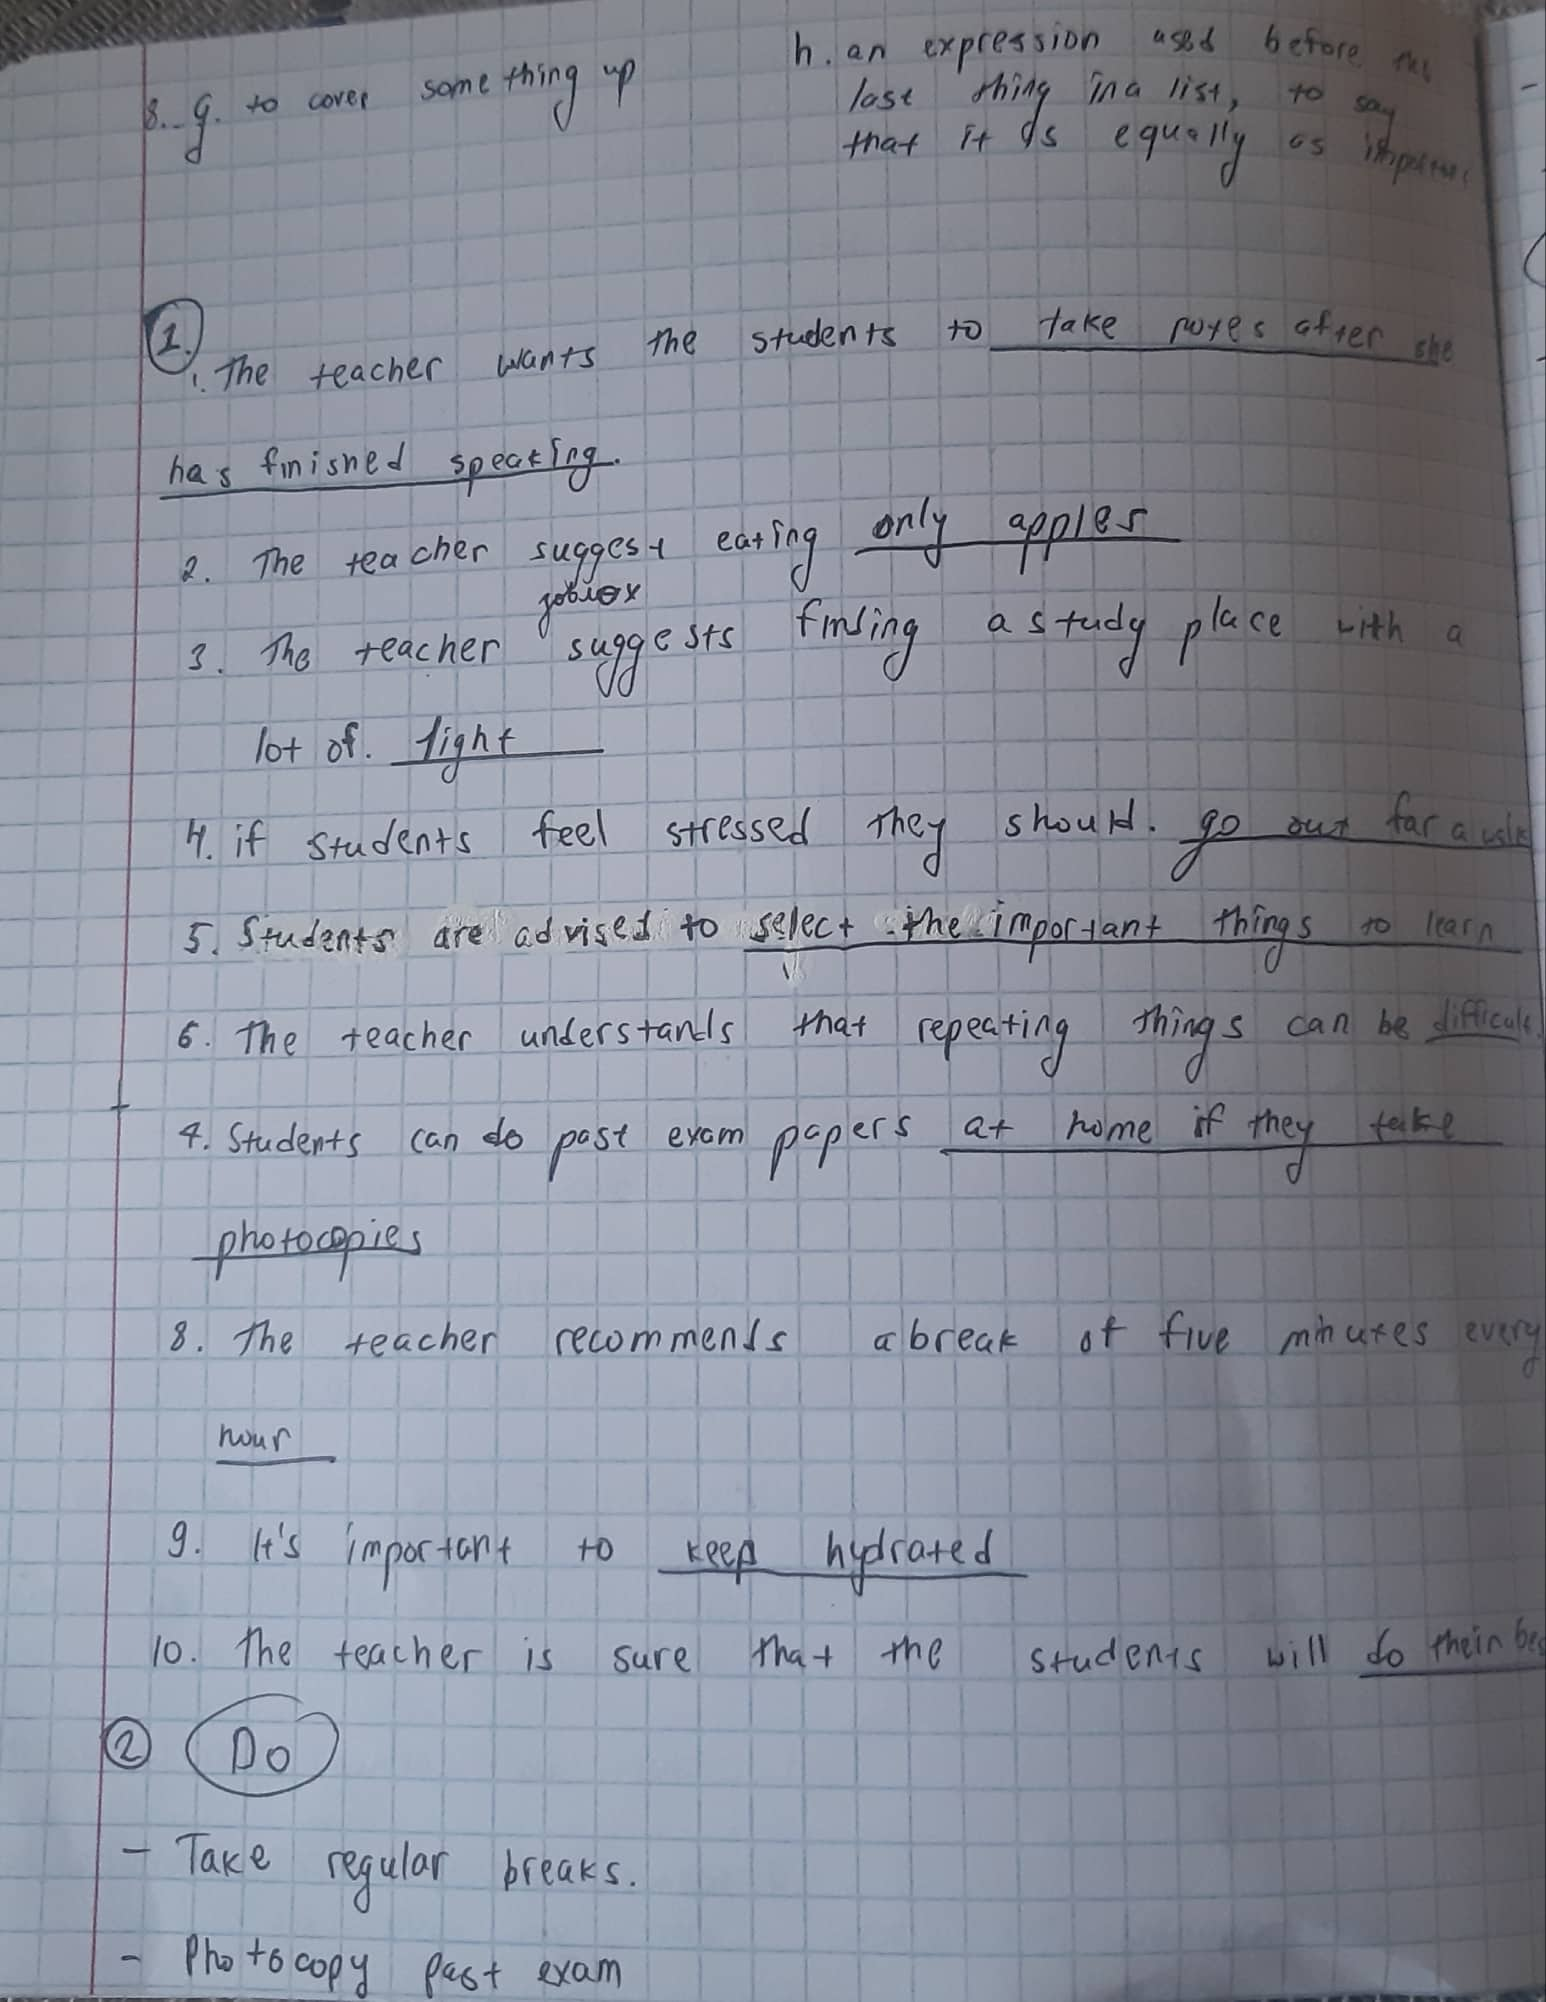 8. g. to cover something up
h. an expression used before the
last thing in a list, to say
that it is equally as important
1.
1. The teacher wants the students to take notes after she
has finished speaking.
2. The teacher suggest eating only apples
3. The teacher suggests finding a study place with a
lot of. light
4. if students feel stressed they should. go out for a walk
5. Students are advised to select the important things to learn
6. The teacher understands that repeating things can be difficult
7. Students can do past exam papers at home if they take
photocopies
8. The teacher recommends a break of five minutes every
hour
9. It's important to keep hydrated
10. The teacher is sure that the students will do their bes
2 Do
- Take regular breaks.
- Photocopy past exam